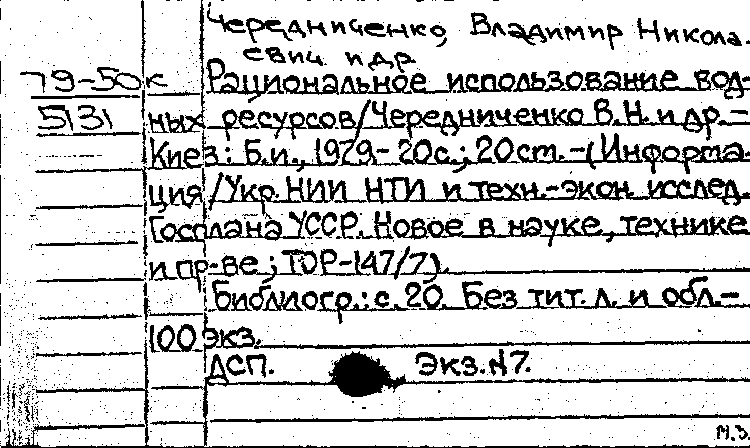 Чередниченко, Владимир Никола-
евич и др.
79-50к Рациональное использование вод-
5131 ных ресурсов/Чередниченко В.Н. и др.-
Киев: Б.и., 1979.- 20с.; 20 ст.-(Информа-
ция/Укр. НИИ НТИ и техн.-экон. исслед.
Госплана УССР. Новое в науке, технике
и пр-ве; ТОР-147/7).
Библиогр.: с. 20. Без тит. л. и обл.-
100 экз.
ДСП. Экз. №7.
М.З